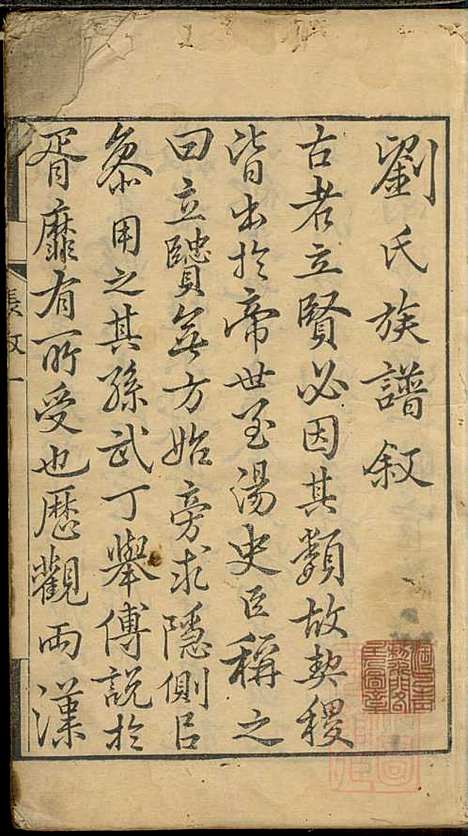 劉氏族譜敘
古者立賢必因其類故契稷
皆出於帝世至湯史臣稱之
曰立賢無方始旁求隱側呂
參用之其孫武丁舉傅說於
胥靡有所受也歷觀兩漢
長文一